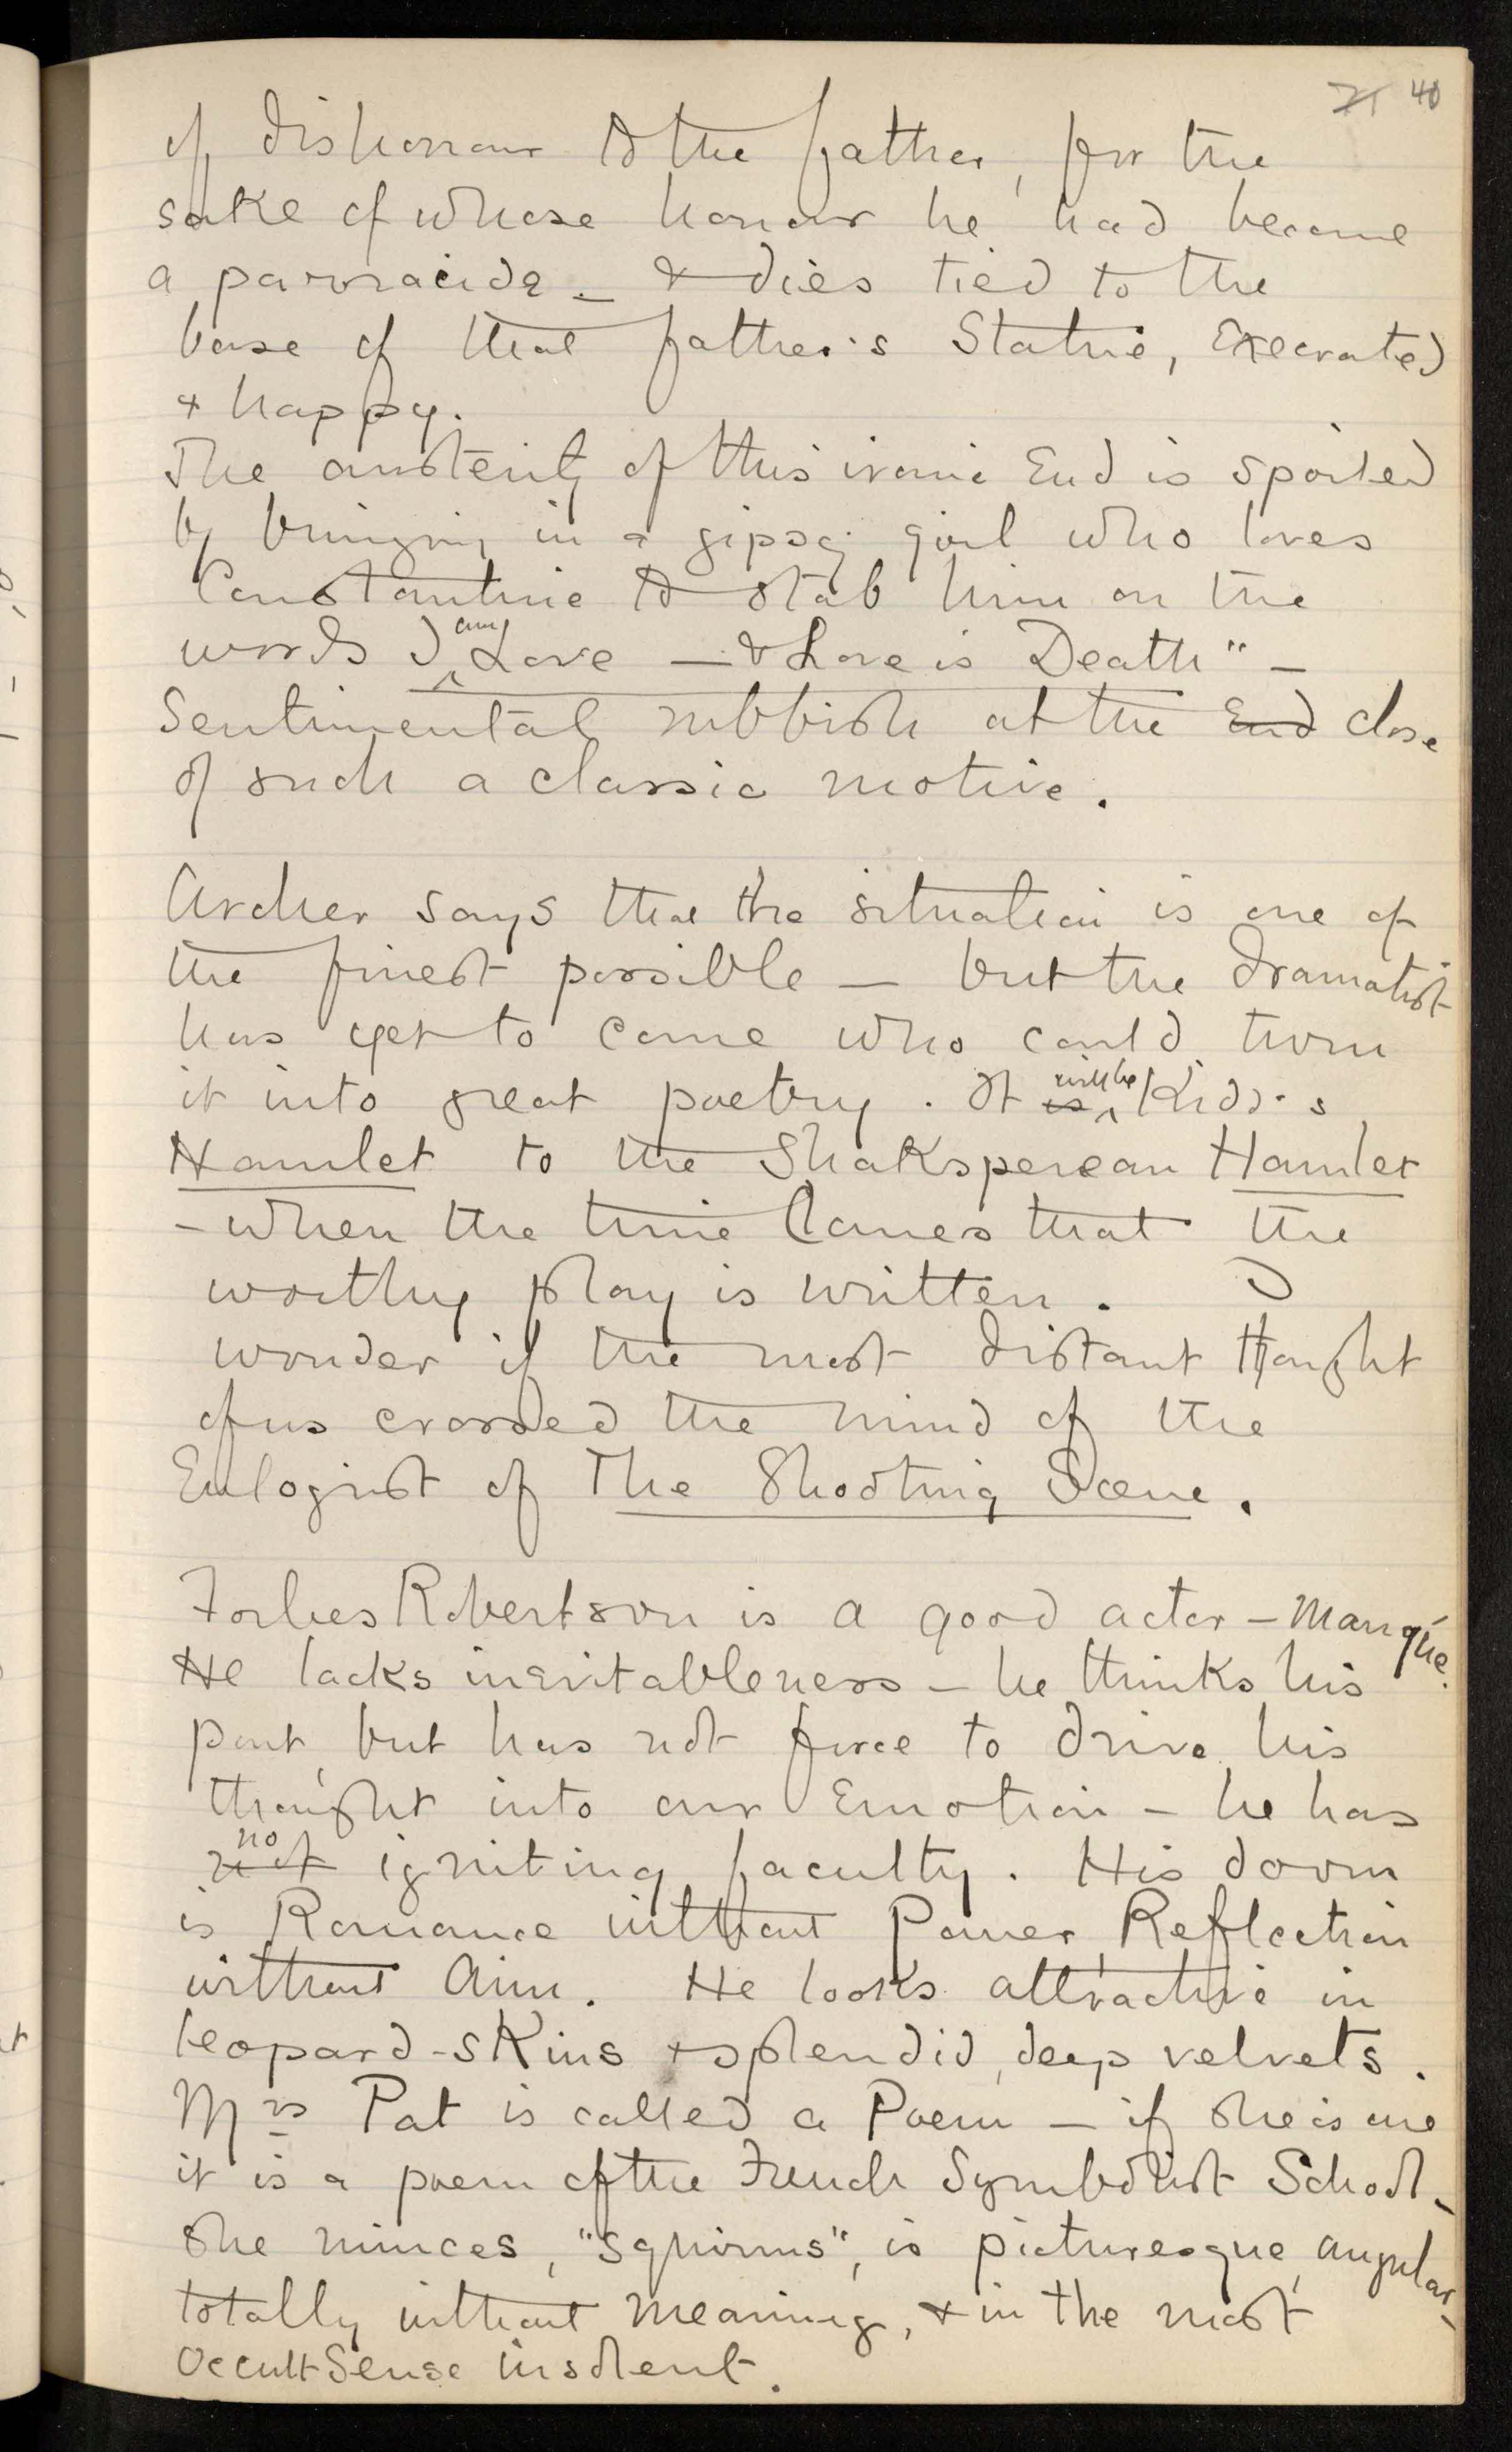 21 40
of dishonour to the father, for the
sake of whose honour he had become
a parracide – & dies tied to the
base of that father's Statue, Execrated
& happy.
The austerity of this ironic End is spoiled
by bringing in a gipsey girl who loves
Constantine to stab him on the
words I am Love – & Love is Death" –
Sentimental rubbish at the End close
of such a classic motive.
Archer says that the situation is one of
the finest possible – but the dramatist
has yet to come who could turn
it into great poetry. It is will be Kidd's
Hamlet to the Shaksperean Hamlet
– when the time Comes that the
worthy play is written. I
wonder if the most distant thought
of us crossed the mind of the
Eulogist of The Shooting Scene.
Forbes Robertson is a good actor – Manqúe.
He lacks inevitableness – he thinks his
part, but has not force to drive his
thought into our Emotion – he has
not no igniting faculty. His doom
is Romance without Power, Reflection
without Aim. He looks attractive in
leopard-skins & splendid, deep velvets.
Mrs Pat is called a Poem – if she is one
it is a poem of the French Symbolist School –
she minces, "squirms", is picturesque, angular –
totally without meaning, & in the most
Occult Sense insolent.